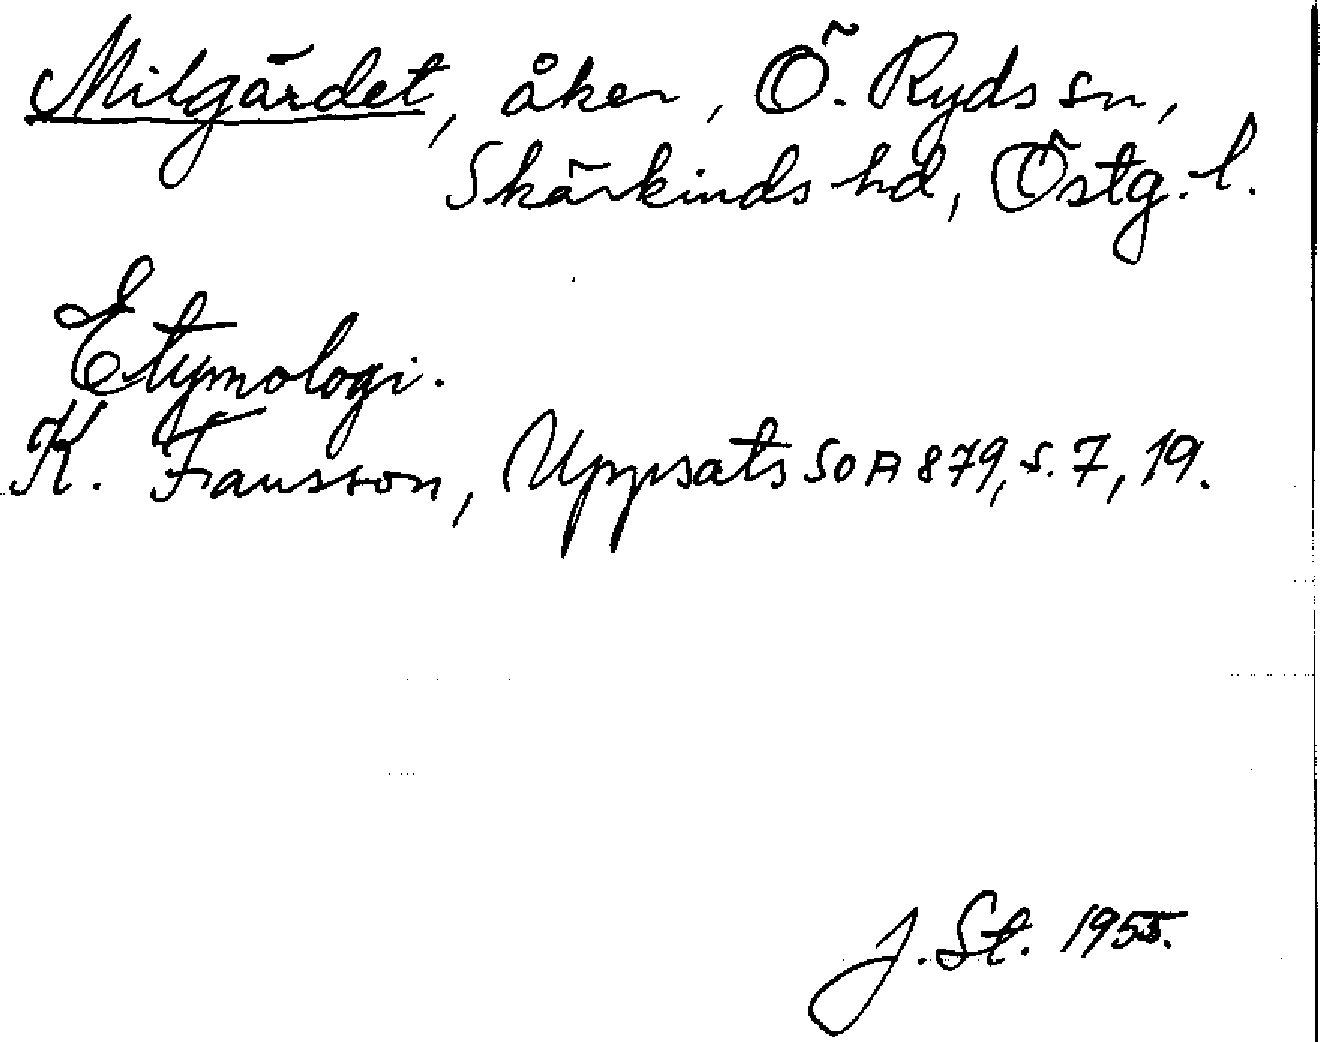 Milgärdet, åker, Ö. Ryds sn,
Skärkinds hd, Östg. l.
Etymologi.
K. Fransson, Uppsats SOA 879, s. 7, 19.
J. St. 1955.